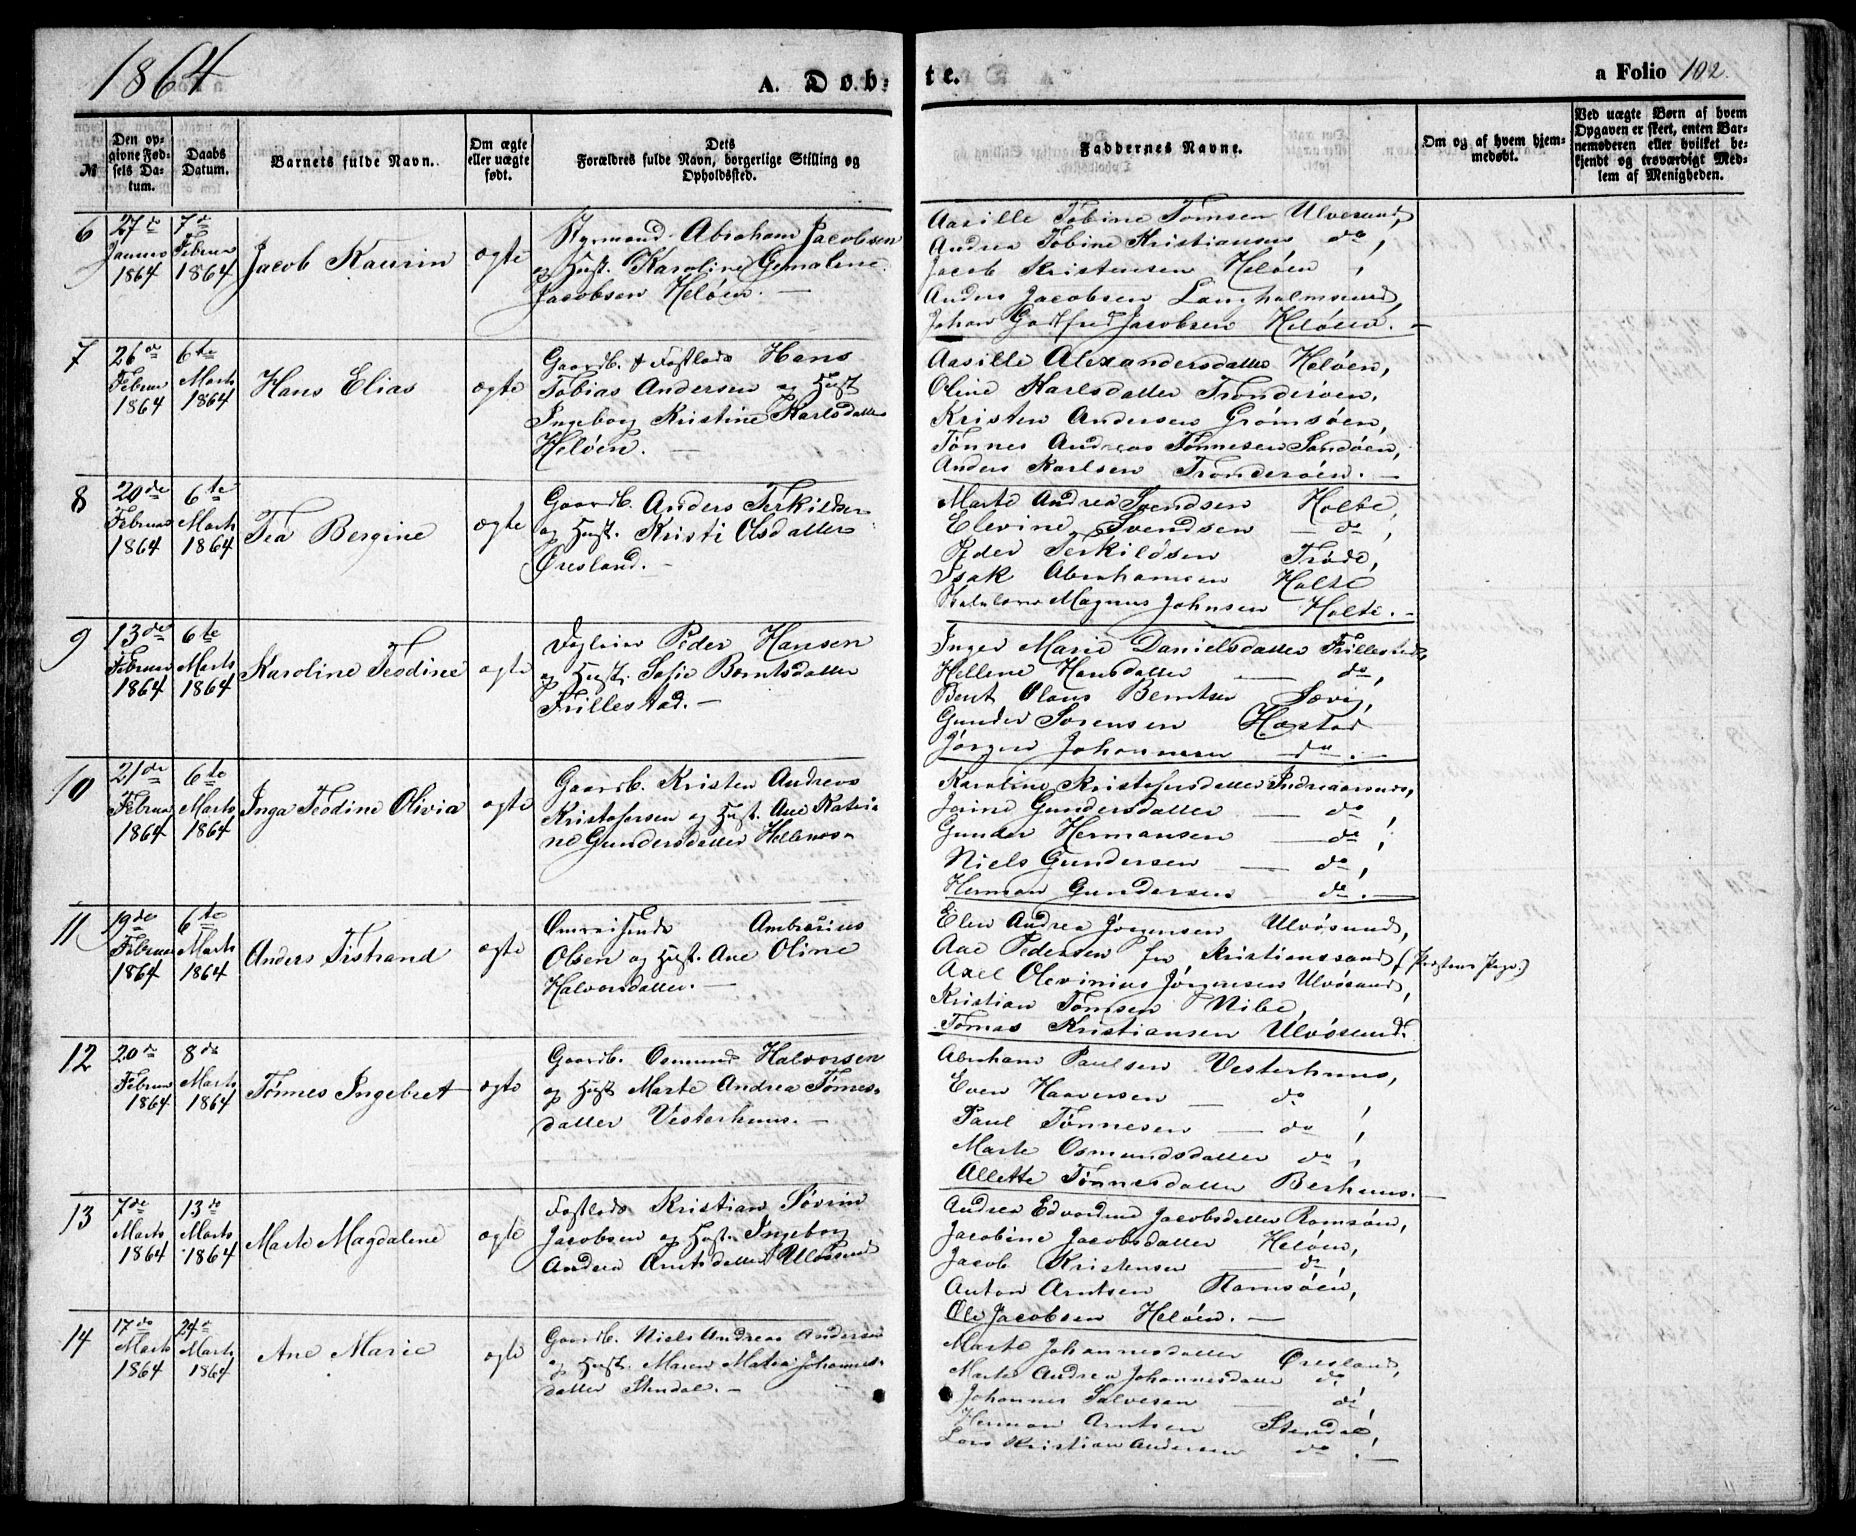 1864
A. Døb-
te.
a Folio 102.
№
Den op-
givne Fød-
sels Da-
tum.
Daabs
Datum.
Barnets fulde Navn.
Om ægte
eller uægte
født.
Dets
Forældres fulde Navn, borgerlige Stilling og
Opholdssted.
Faddernes Navne.
Om og af hvem hjem-
medøbt.
Ved uægte Børn af hvem
Opgaven er skeet, enten Bar-
nemoderen eller hvilket be-
kjendt og troværdigt Med-
lem af Menigheden.
6
27de
Januar
1864
7de
Februar
1864
Jacob Kaurin
ægte
Styrmand Abraham Jacobsen
og Hust. Karoline Gemalene
Jacobsen Heløen. —
Aasille Tobine Tømsen Ulvøsund,
Andrea Tobine Kristiansen do,
Jacob Kristensen Heløen,
Anders Jacobsen Langholmsund,
Johan Godtfred Jacobsen Heløen. —
7
26de
Februar
1864
6te
Marts
1864
Hans Elias
ægte
Gaardb. & Hans
Tobias Andersen og Hust
Ingeborg Kristine Karlsdatter
Heløen. —
Aasille Alexandersdatter Heløen,
Oline Karlsdatter Trønderøen,
Kristen Andersen Grømsøen,
Tønnes Andreas Tønnesen Sandøen,
Anders Karlsen Trønderøen. —
8
20de
Februar
1864
6te
Marts
1864
Tea Bergine
ægte
Gaardb. Anders Terkildsen
og Hust. Kristi Olsdatter
Øresland. —
Marte Andrea Svendsen Holte,
Elevine Svendsen — do,
Peder Terkildsen Trøde,
Isak Abrahamsen Holte
Magnus Johnsen Holte. —
9
13de
Februar
1864
6te
Marts
1864
Karoline Teodine
ægte
Peder Hansen
og Hust. Sofie Berntsdatter
Frillestad. —
Inger Marie Danielsdatter Frillestad,
Hellene Hansdatter — do,
Bent Olaus Berntsen Søvig,
Gunder Sørensen Hæstad
Jørgen Johannesen — do. —
10
21de
Februar
1864
6te
Marts
1864
Inga Teodine Olivia
ægte
Gaardb. Kristen Andreas
Kristofersen og Hust. Ane Katri-
ne Gundersdatter
Karoline Kristofersdatter
Gundersdatter — do,
Gunder Hermansen — do,
Niels Gundersen — do,
Herman Gundersen do. —
11
19de
Februar
1864
6te
Marts
1864
Anders Tistrand
ægte
Omreisende Ambrosius
Olsen og Hust. Ane Oline
Halvorsdatter. —
Elen Andrea Jørgensen Ulvøsund,
Aae Pedersen fra Kristianssand,
Axel Olevinius Jørgensen Ulvøsund,
Kristian Tømsen Nibe,
Tomas Kristiansen Ulvøsund.
12
20de
Februar
1864
8de
Marts
1864
Tønnes Ingebret
ægte
Gaardb. Osmund Halvorsen
og Hust Marte Andrea Tønnes-
datter Vesterhuus. —
Abraham Paulsen Vesterhuus,
Even Haaversen — do,
Paul Tønnesen — do,
Marte Osmundsdatter do,
Allette Tønnesdatter Berhuus. —
13
7de
Marts
1864
13de
Marts
1864
Marte Magdalene
ægte
Kristian Søvrin
Jacobsen og Hust. Ingeborg
Andrea Arntsdatter Ulvøsund
Andrea Edvardine Jacobsdatter Ramsøen,
Jacobine Jacobsdatter Heløen,
Jacob Kristensen — do,
Anton Arntsen Ramsøen,
Ole Jacobsen Heløen. —
14
17de
Marts
1864
24de
Marts
1864
Ane Marie
ægte
Gaardb. Niels Andreas Andersen
og Hust. Maren Matea Johannes-
datter Stendal. —
Marte Johannesdatter Øresland,
Marte Andrea Johannesdatter do,
Johannes Salvesen — do,
Herman Arntsen Stendal,
Lars Kristian Andersen do. —